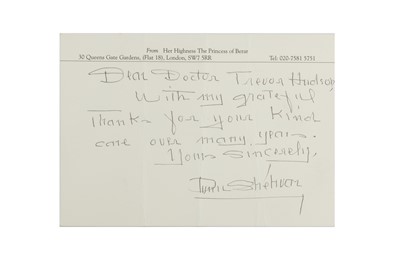 From Her Highness The Princess of Berar
30 Queens Gate Gardens, (Flat 18), London, SW7 5RR Tel: 020-7581 5751
Dear Doctor Trevor Hudson
With my grateful
Thanks for your kind
care over many years.
Yours Sincerely,